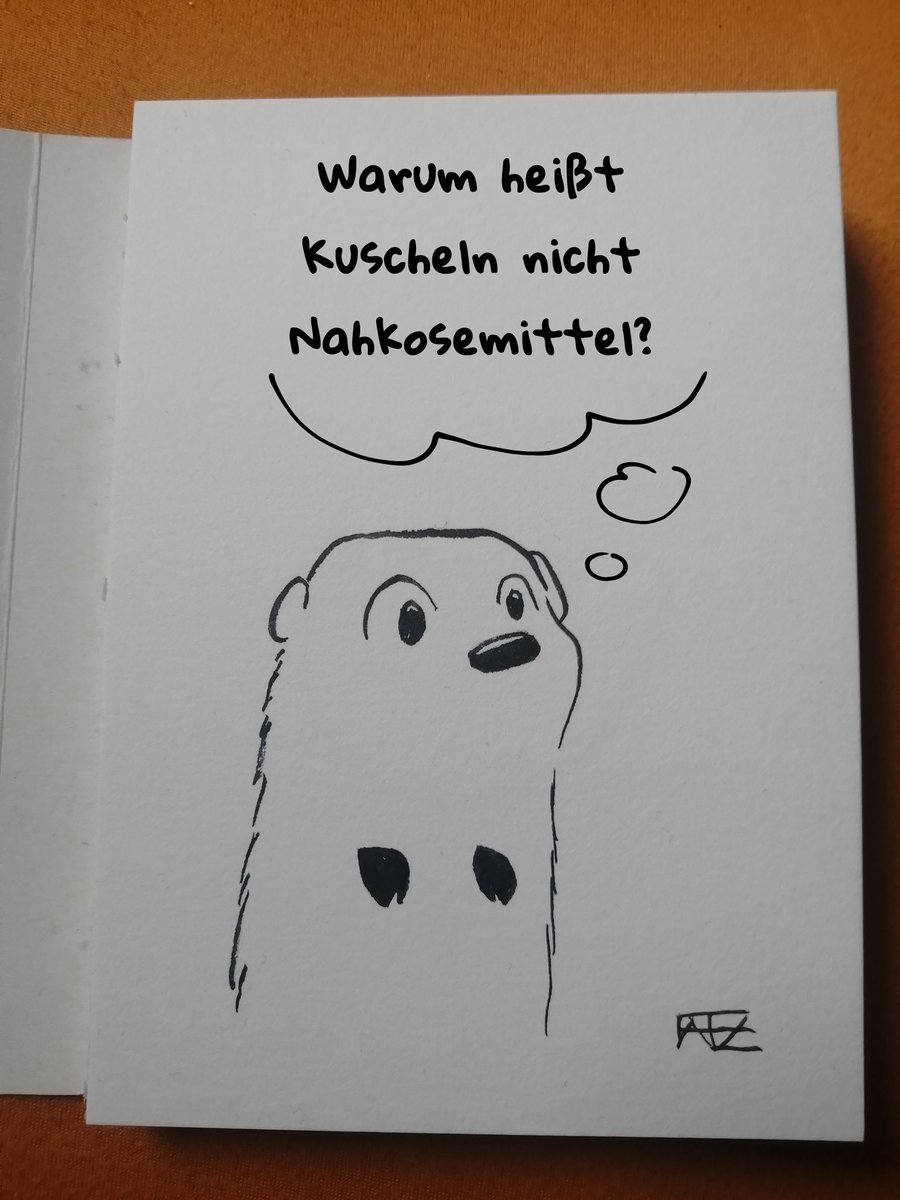 Warum heißt
Kuscheln nicht
Nahkosemittel?